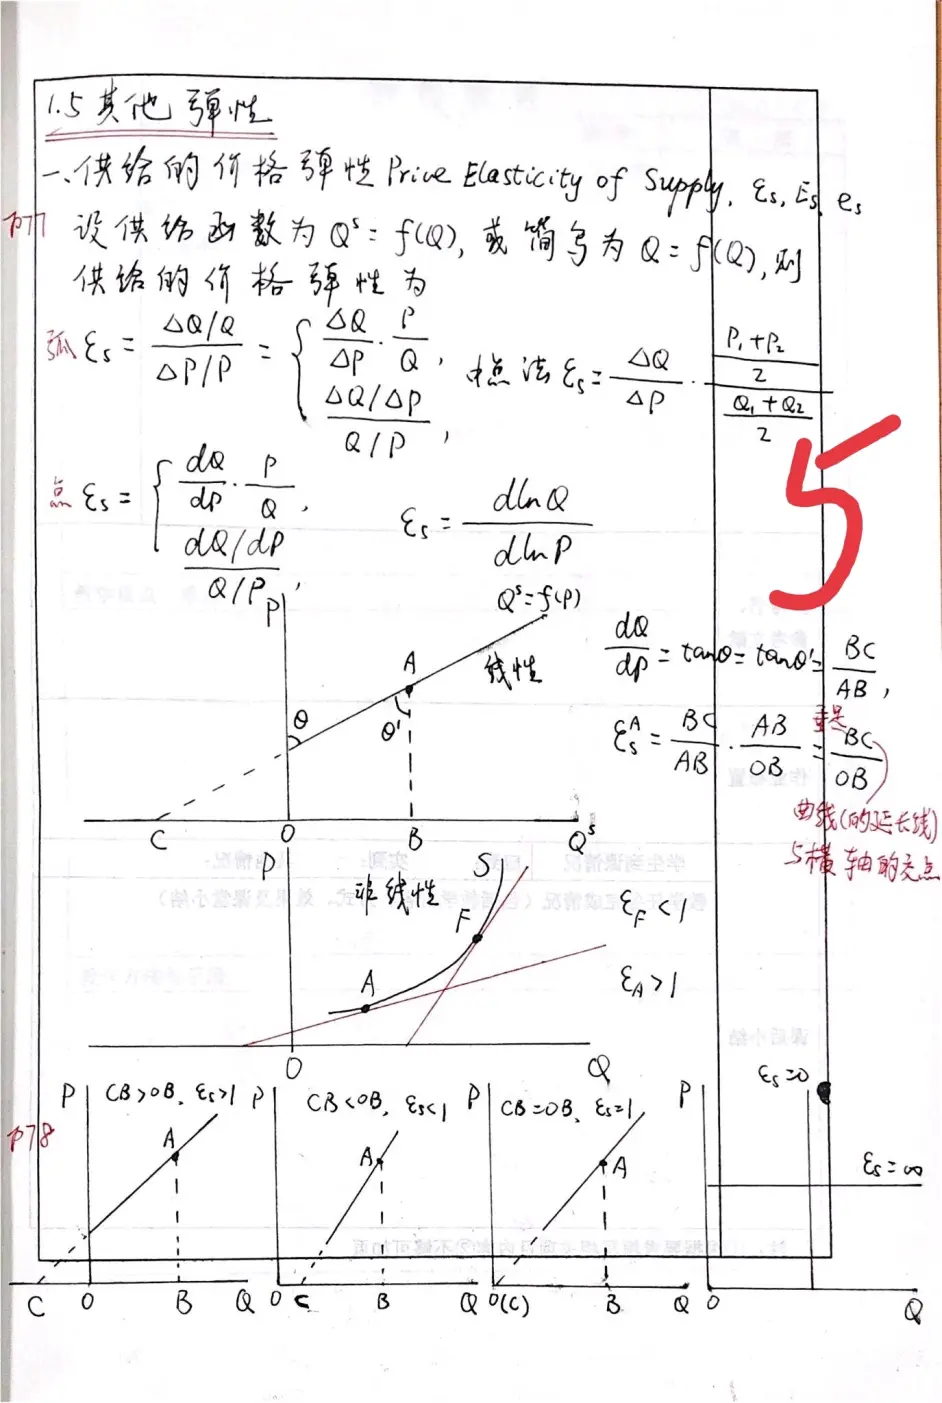 1.5 其他弹性
一、供给的价格弹性 Price Elasticity of Supply, εs, Es, es
P77 设供给函数为 Q^s = f(Q), 或简写为 Q = f(Q), 则
供给的价格弹性为
弧 εs = (ΔQ/Q)/(ΔP/P) = { ΔQ/ΔP · P/Q, (ΔQ/ΔP)/(Q/P), 中点法 εs = ΔQ/ΔP · ((P₁+P₂)/2)/((Q₁+Q₂)/2)
点 εs = { dQ/dP · P/Q, (dQ/dP)/(Q/P), εs = dlnQ/dlnP
5
P
Q^s = f(P)
A
线性
θ
θ'
C O B Q^s
dQ/dP = tanθ = tanθ' = BC/AB,
εs^A = BC/AB · AB/OB = BC/OB
垂足
曲线(的延长线)
与横轴的交点
P 非线性 S
F
A
O Q
ε_F < 1
ε_A > 1
P78
P CB>OB, εs>1
A
C O B Q
P CB<OB, εs<1
A
O C B Q
P CB=OB, εs=1
A
O(C) B Q
P εs=0
εs=∞
O Q
学生到课情况
实到:
课后小结